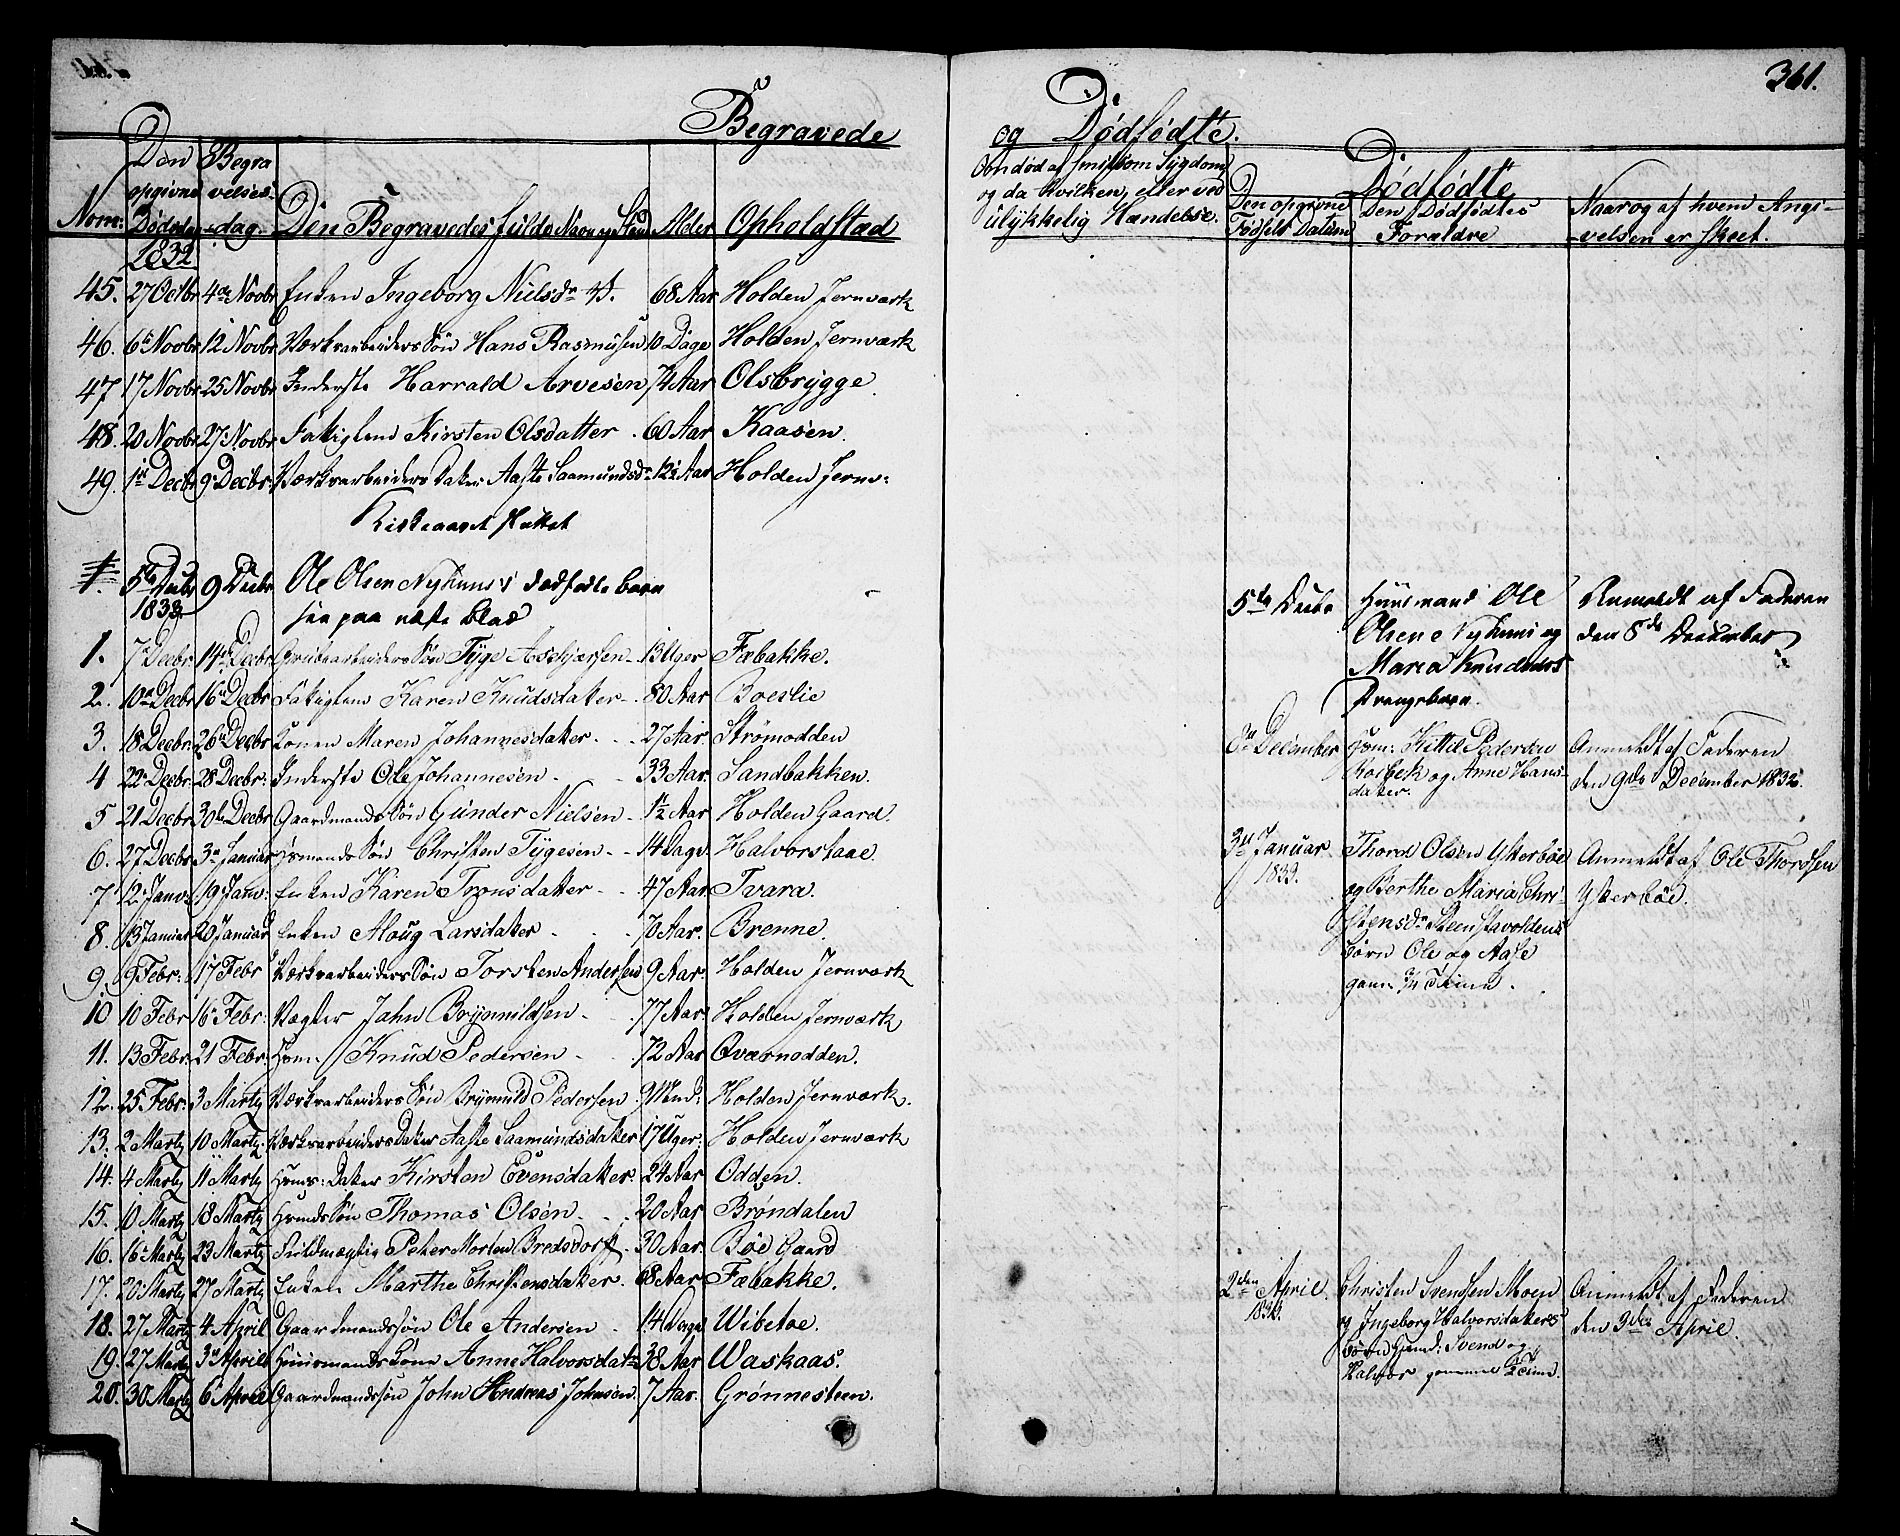 361.
Begravede
og Dødfødte.
Nom: Den opgivne Dødsdag Begravelses-dag Den Begravedes fulde Navn og Stand Alder Opholdstad
Om død af smitsom Sygdom
og da hvilken, eller ved
ulykkelig Hændelse.
Den opgivne
Fødsels Datum
Dødfødte
Den Dødfødtes
Forældre
Naar og af hvem Angi-
-velsen er skeet.
1832
45. 27 Octbr 4de Novbr Enken Ingeborg Nielsdr 68 Aar Holden Jernværk
46. 6te Novbr 12 Novbr Værksarbeiders Søn Hans Rasmusen 10 Dage Holden Jernværk
47 17 Novbr 25 Novbr Inderste Harrald Arvesen 74 Aar Olsbrygge
48. 20 Novbr 27 Novbr Fattiglem Kirsten Olsdatter 60 Aar Kaasen.
49. 1ste Decbr 9 Decbr: Værksarbeiders Datter Aaste Saamundsdr 12½ Aar Holden Jernv:
Kirkeaaret sluttet
1. 5te Decbr 9 Decbr Ole Olsen Nyhuus's dødfødte barn
1833 see paa næste blad
1. 7de Decbr 14de Decbr Grubearbeiders Søn Tyge Asbjørsen 13 Uger Fæbakke.
2. 10de Decbr 16de Decbr Fattiglem Karen Knudsdatter 80 Aar Boeslie
3. 18 Decbr: 26de Decbr Konen Maren Johannesdatter 27 Aar. Strømodden
4 22 Decbr: 28 Decbr: Inderste Ole Johannesen 33 Aar. Sandbakken.
5 21 Decbr 30te Decbr Gaardmands Søn Gunder Nielsen 1½ Aar Holden Gaard.
6. 27 Decbr 3de Januar Hsmands Søn Christen Tygesen 14 Dage. Halvorstaae.
7 12 Janv: 19 Janv: Enken Karen Tronsdatter 47 Aar Tvara.
8. 13 Januar 20 Januar Enken Aloug Larsdatter 76 Aar. Brenne.
9. 9 Febr: 17 Febr Værksarbeiders Søn Torsten Andersen 9 Aar. Holden Jernværk
10 10 Febr 16 Febr: Vægter Jahn Brynnildsen 77 Aar. Holden Jernværk
11. 13 Febr: 21 Febr: Hsm: Knud Pedersen 72 Aar Qværnodden.
12. 25 Febr: 3 Marty Værksarbeiders Søn Brynnild Pedersen 9 Mnd: Holden Jernværk.
13. 2 Marty 10 Marty Værksarbeiders Datter Aaste Saamundsdatter 17 Uger: Holden Jernværk
14. 4 Marty 11 Marty Hsms: Datter Kirsten Evensdatter 24 Aar Odden.
15. 10 Marty 18 Marty Hsmds Søn Thomas Olsen 20 Aar Brøndalen
16. 16 Marty 23 Marty Fuldmægtig Peter Morten Bredsdorff 30 Aar. Bøe Gaard
17. 20 Marty 27 Marty Enken Marthe Christensdatter. 68 Aar Fæbakke.
18. 27 Marty 4 April Gaardmandssøn Ole Andersen 14 Dage Wibetoe.
19. 27 Marty 3de April Huusmands Kone Anne Halvorsdatr 38 Aar Waskaas.
20. 30 Marty 6 April Gaardmandssøn John Andreas Johnsen 7 Aar. Grønnesteen
5te Decbr
Huusmand Ole
Olsen Nyhuus og
Maria Knudsdrs
Drengebarn.
Anmeldt af Faderen
den 8de December
December
Hsm: Kittil Pedersen
og Anne Hans-
datter.
Anmeldt af Faderen
den 9de December 1832.
3de Januar
1833.
Thord Olsen Ytterbøe
og Berthe Maria Chri-
stensdr Steenstavoldens
børn Ole og Aase
Anmeldt af Ole Thordsen
Ytterbøe.
2den April
1833.
Christen Svendsen Moen
og Ingeborg Halvorsdatters
børn Svend og
Halvor
Anmeldt af Faderen
den 3die April.